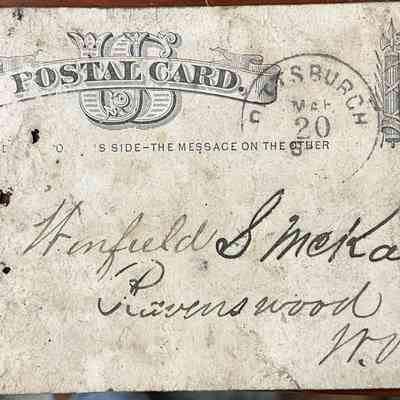 US
POSTAL CARD.
SBURCH
MAR
20
S SIDE–THE MESSAGE ON THE OTHER
Winfield S McKa
Ravenswood
W.